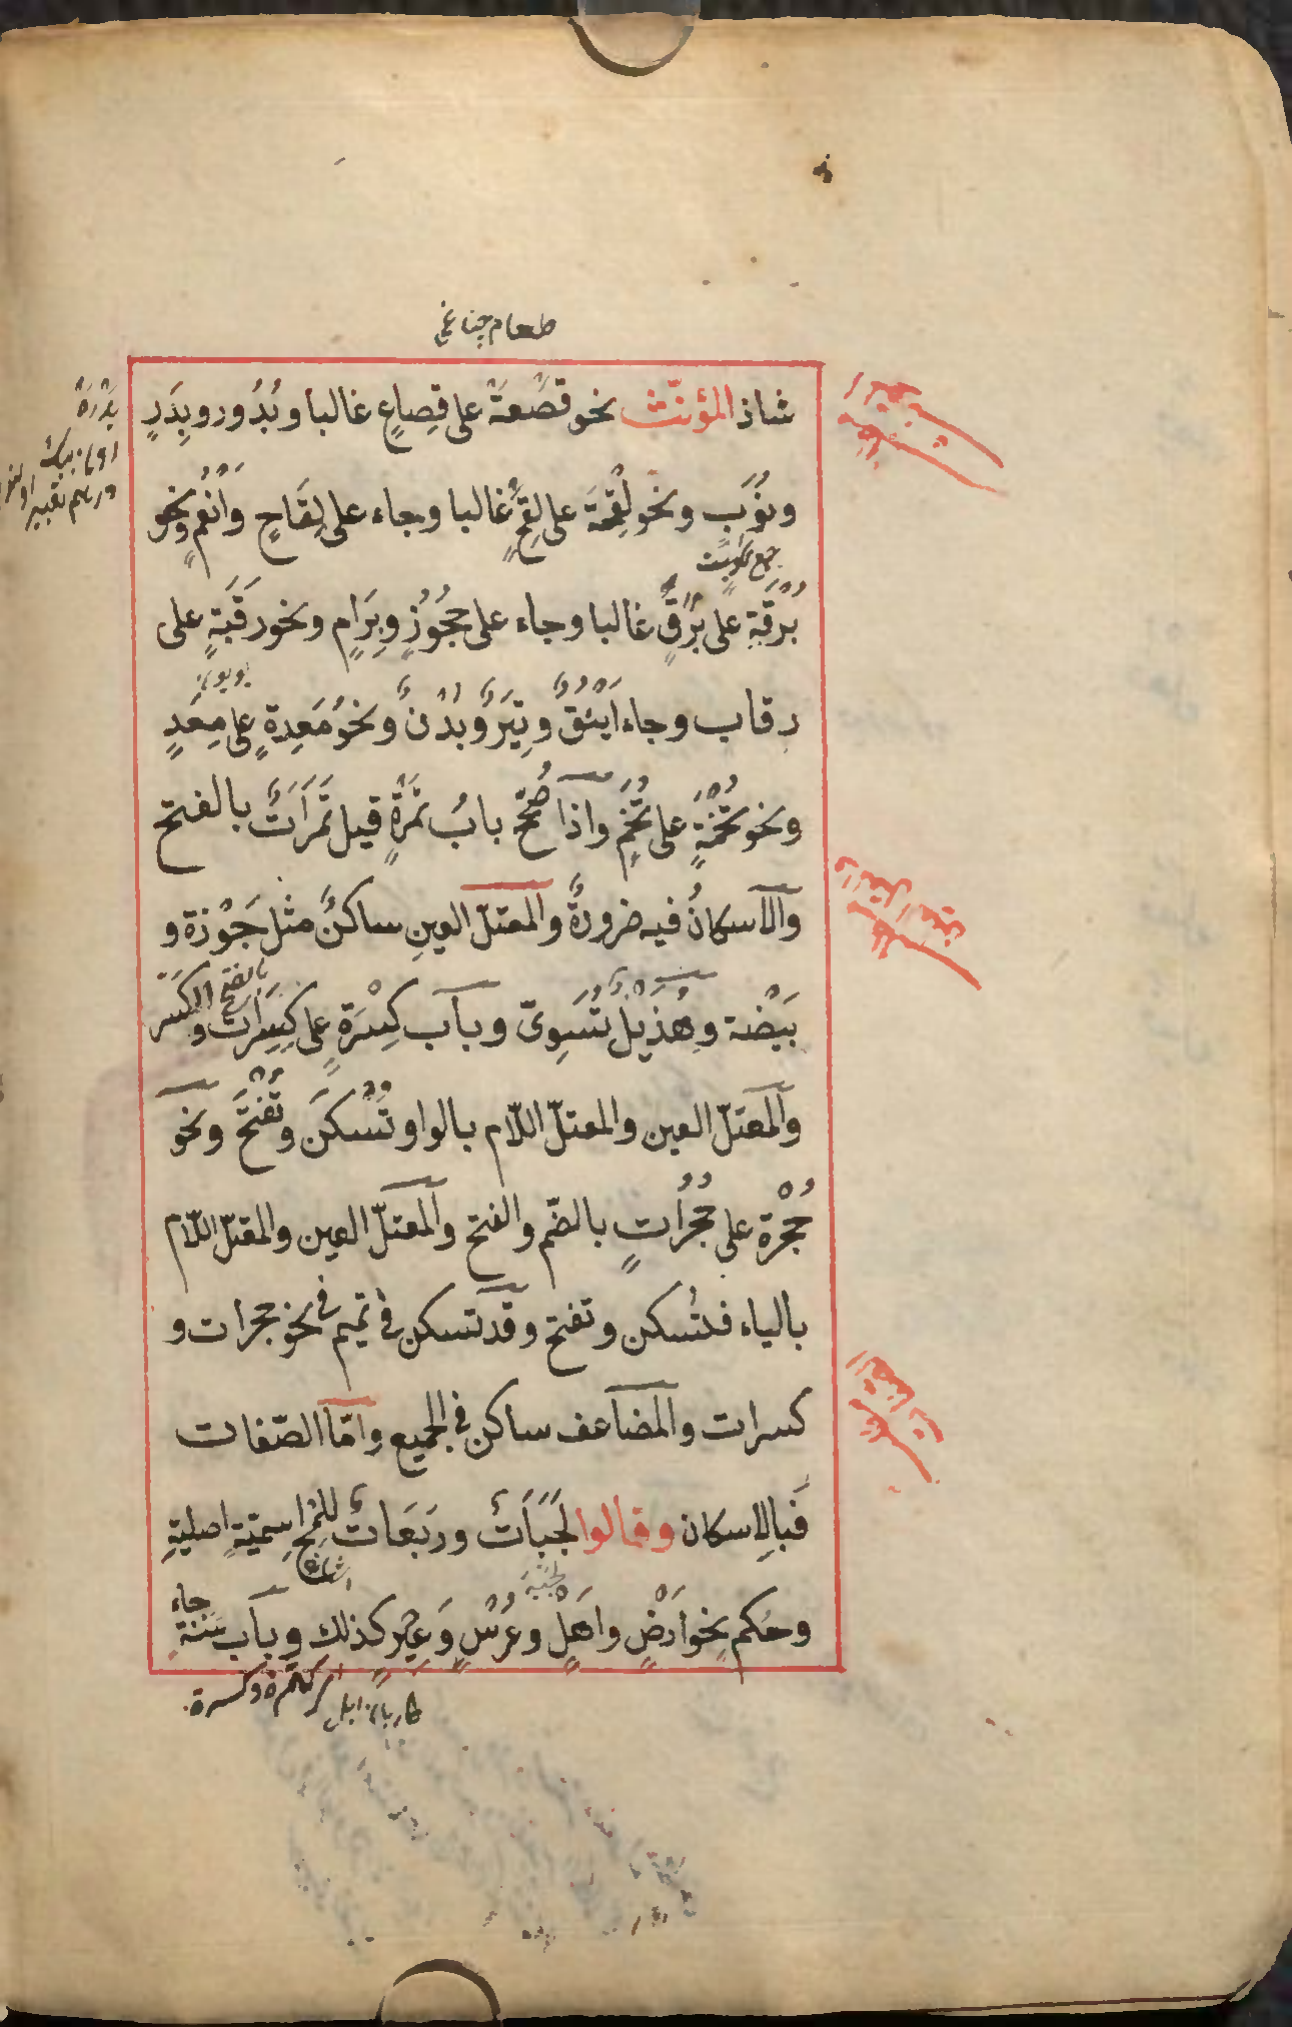 طعام چناغی
شاذ المؤنّث نحو قَصْعَة على قِصاعٍ غالبا وبُدُور وبِدَرٍ
ونُوَبٍ ونحو لِقْحَة على لِقَحٍ غالبا وجاء على لِقَاحٍ وَاَنْعُمٍ ونحو
بُرْقَةٍ على بُرَقٍ غالبا وجاء على حُجُوزٍ وبِرَامٍ ونحو رَقَبَةٍ على
رقاب وجاء اَيْنُقٌ وتِيَرٌ وبُدْنٌ ونحو مَعِدَةٍ على مِعَدٍ
ونحو تُخْمَةٍ على تُخَمٍ واذا صُحِّحَ بابُ تَمْرَةٍ قيل تَمَرَاتٌ بالفتح
والاسكانُ فيه ضرورةٌ والمعتلّ العينِ ساكنٌ مثل جَوْزة و
بَيْضة وهُذَيْلٌ تُسَوِىّ وباب كِسْرَةٍ على كِسِرَات بالفتح والكَسر
والمعتلّ العين والمعتلّ اللّام بالواو تُسْكَن وتُفْتَحُ ونحو
حُجْرة على حُجُرُاتٍ بالضّم والفتح والمعتلّ العين والمعتلّ اللّام
بالياء فتُسكن وتفتح وقد تسكن فى تميم فى نحو حجرات و
كسرات والمضاعف ساكن فى الجميع وامّا الصّفات
فَبالاسكان وقالوا لَجَبَاتٌ ورَبَعَاتٌ لِلَمْحِ اسميّةٍ اصليّةٍ
وحُكم نحو اَرْضٍ واَهْلٍ وعُرْسٍ وَعِيرٍ كذلك وباب سَنَةٍ جاء